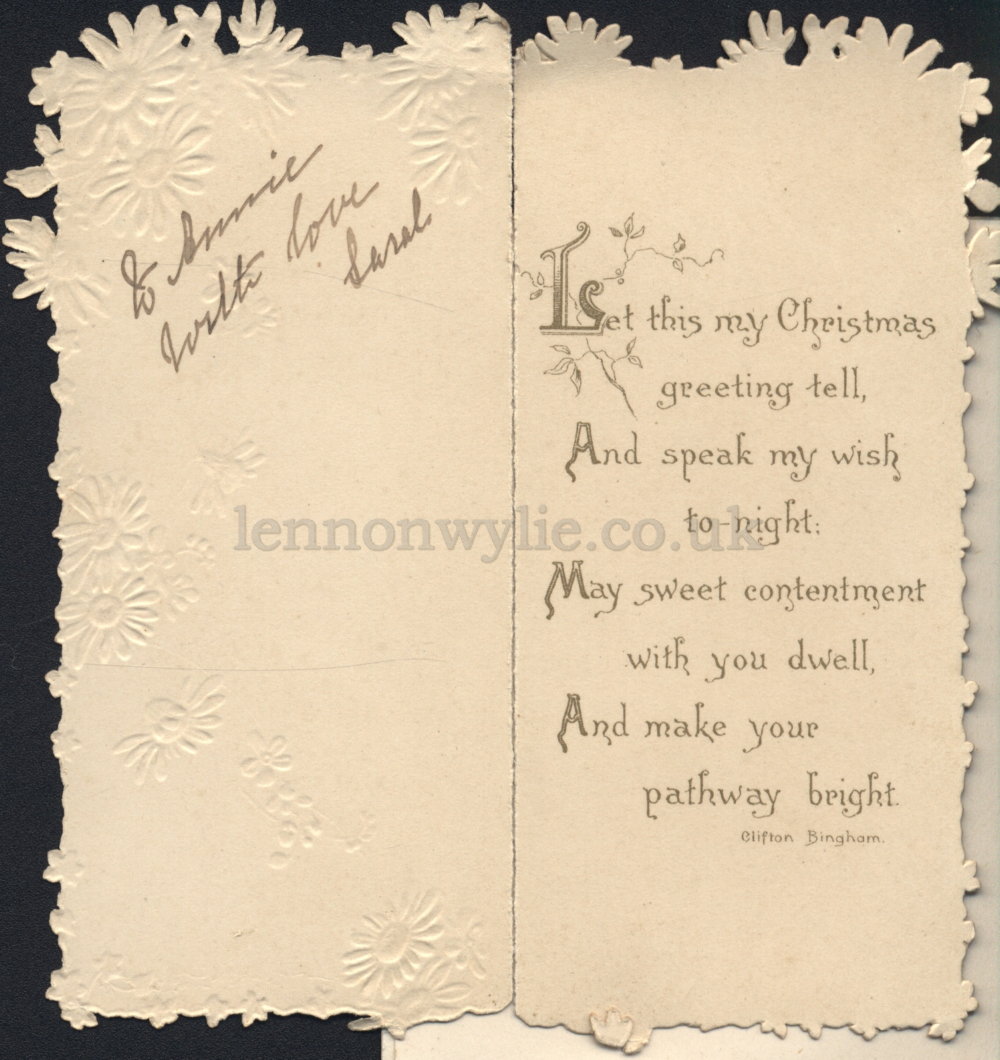 To Annie
With love
Sarah
Let this my Christmas
greeting tell,
And speak my wish
to-night;
May sweet contentment
with you dwell,
And make your
pathway bright.
Clifton Bingham.
lennonwylie.co.uk